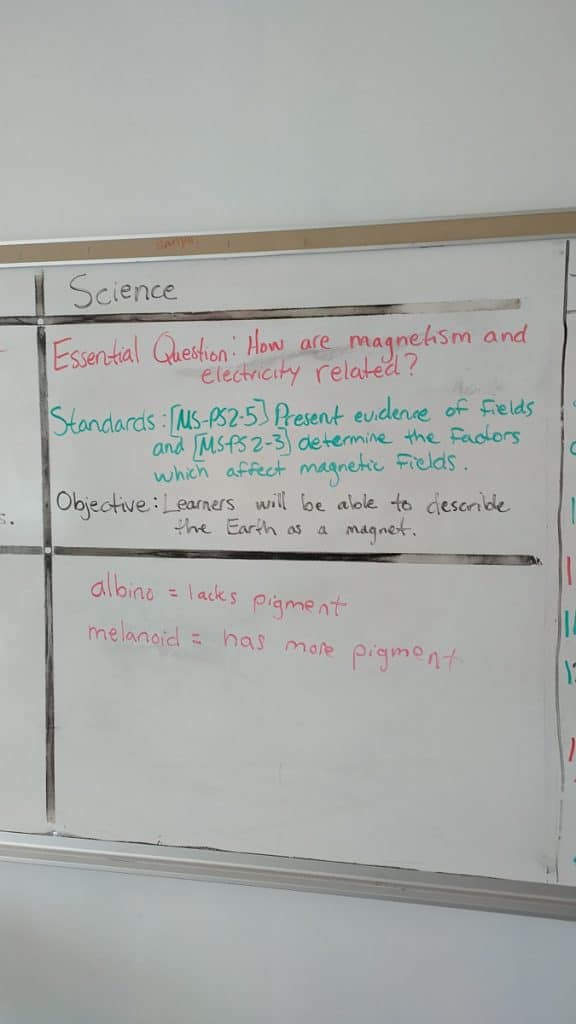 Science
Essential Question: How are magnetism and
electricity related?
Standards: [MS-PS2-5] Present evidence of fields
and [MSPS2-3] determine the factors
which affect magnetic fields.
Objective: Learners will be able to describle
the Earth as a magnet.
albino = lacks pigment
melanoid = has more pigment